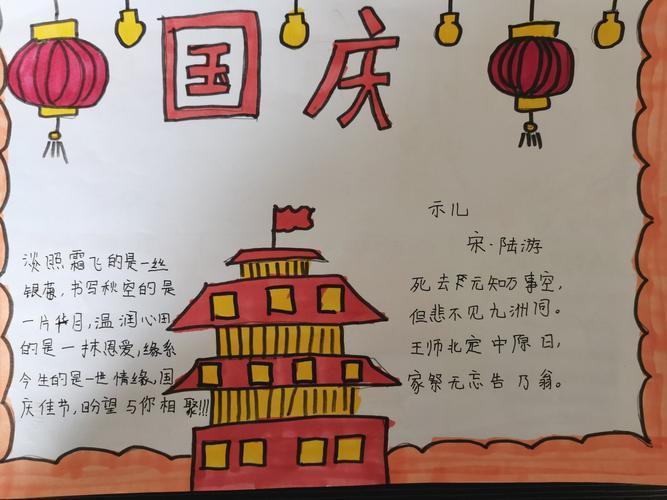 国庆
淡照霜飞的是一丝
银菊,书写秋空的是
一片华月,温润心田
的是一抹恩爱,缘系
今生的是一世情缘,国
庆佳节,盼望与你相聚!!!
示儿
宋·陆游
死去元知万事空,
但悲不见九洲同。
王师北定中原日,
家祭无忘告乃翁。